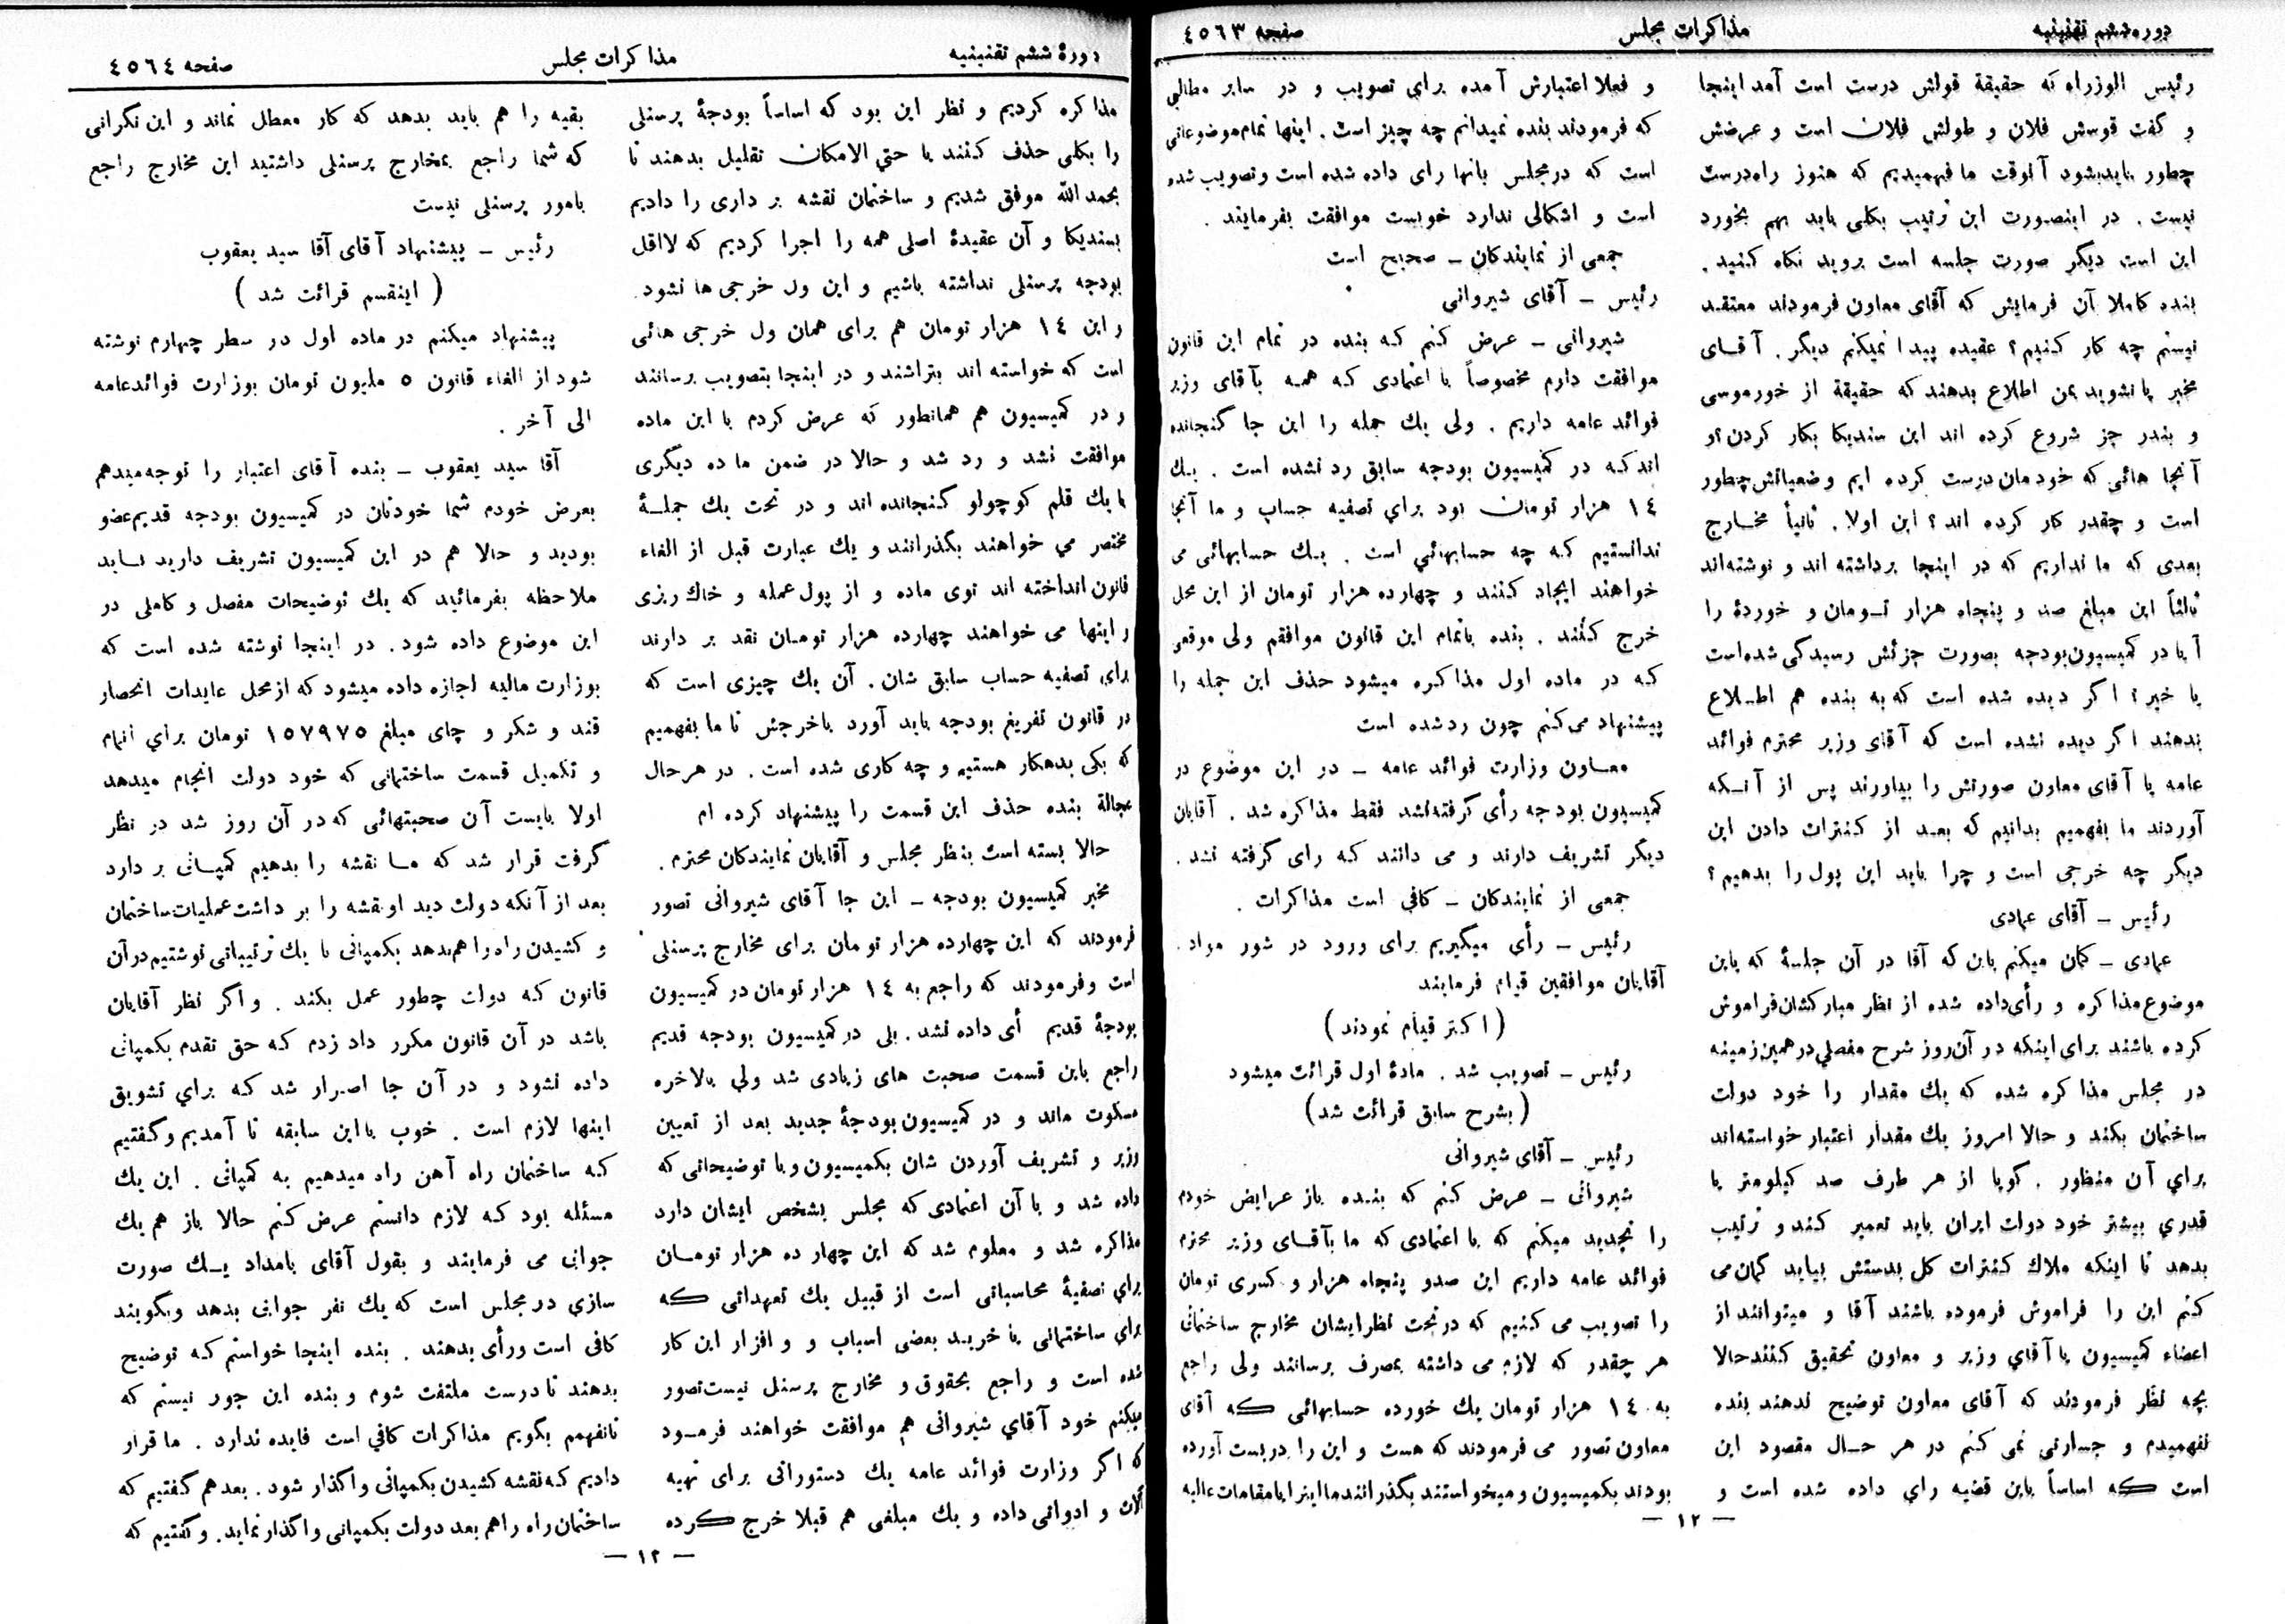 دوره ششم تقنینیه
مذاکرات مجلس
صفحه ٤٥٦٣
رئیس الوزراء که حقیقة قولش درست است آمد اینجا
و گفت قوسش فلان و طولش فلان است و عرضش
چطور باید بشود آنوقت ما فهمیدیم که هنوز راه درست
نیست . در اینصورت این ترتیب بکلی باید بهم بخورد
این است دیگر صورت جلسه است بروید نگاه کنید .
بنده کاملا آن فرمایش که آقای معاون فرمودند معتقد
نیستم چه کار کنیم ؟ عقیده پیدا نمیکنم دیگر . آقای
مخبر پا نشوید بمن اطلاع بدهند که حقیقة از خورموسی
و بندر جز شروع کرده اند این سندیکا بکار کردن ؟ و
آنجا هائی که خودمان درست کرده ایم وضعیاتش چطور
است و چقدر کار کرده اند ؟ این اولا . ثانیاً مخارج
بعدی که ما نداریم که در اینجا برداشته اند و نوشته‌اند
ثالثاً این مبلغ صد و پنجاه هزار تومان و خوردۀ را
آیا در کمیسیون بودجه بصورت جزئش رسیدگی شده است
یا خیر ؟ اگر دیده شده است که به بنده هم اطلاع
بدهند اگر دیده نشده است که آقای وزیر محترم فوائد
عامه یا آقای معاون صورتش را بیاورند پس از آنکه
آوردند ما بفهمیم بدانیم که بعد از کنترات دادن این
دیگر چه خرجی است و چرا باید این پول را بدهیم ؟
رئیس ــ آقای عمادی
عمادی ــ گمان میکنم باین که آقا در آن جلسۀ که باین
موضوع مذاکره و رأی داده شده از نظر مبارکشان فراموش
کرده باشند برای اینکه در آن روز شرح مفصلی در همین زمینه
در مجلس مذاکره شده که یك مقدار را خود دولت
ساختمان بکند و حالا امروز یك مقدار اعتبار خواسته‌اند
برای آن منظور . گویا از هر طرف صد کیلومتر یا
قدری بیشتر خود دولت ایران باید تعمیر کند و ترتیب
بدهد تا اینکه ملاك کنترات کل بدستش بیاید گمان می
کنم این را فراموش فرموده باشند آقا و میتوانند از
اعضاء کمیسیون یا آقای وزیر و معاون تحقیق کنند حالا
بچه نظر فرمودند که آقای معاون توضیح ندهند بنده
نفهمیدم و جسارتی نمی کنم در هر حال مقصود این
است که اساساً باین قضیه رای داده شده است و
و فعلا اعتبارش آمده برای تصویب و در سایر مطالبی
که فرمودند بنده نمیدانم چه چیز است . اینها تمام موضوعاتی
است که در مجلس بانها رای داده شده است و تصویب شده
است و اشکالی ندارد خوبست موافقت بفرمایند .
جمعی از نمایندگان ــ صحیح است
رئیس ــ آقای شیروانی
شیروانی ــ عرض کنم که بنده در تمام این قانون
موافقت دارم مخصوصاً با اعتمادی که همه بآقای وزیر
فوائد عامه داریم . ولی یك جمله را این جا گنجانده
اند که در کمیسیون بودجه سابق رد نشده است . یك
١٤ هزار تومان بود برای تصفیه حساب و ما آنجا
ندانستیم که چه حسابهائی است . یك حسابهائی می
خواهند ایجاد کنند و چهارده هزار تومان از این محل
خرج کنند . بنده باتمام این قانون موافقم ولی موقعی
که در ماده اول مذاکره میشود حذف این جمله را
پیشنهاد می‌کنم چون رد شده است
معاون وزارت فوائد عامه ــ در این موضوع در
کمیسیون بودجه رأی گرفته نشد فقط مذاکره شد . آقایان
دیگر تشریف دارند و می دانند که رای گرفته نشد .
جمعی از نمایندگان ــ کافی است مذاکرات .
رئیس ــ رأی میگیریم برای ورود در شور مواد .
آقایان موافقین قیام فرمایند
( اکثر قیام نمودند )
رئیس ــ تصویب شد . مادۀ اول قرائت میشود
( بشرح سابق قرائت شد )
رئیس ــ آقای شیروانی
شیروانی ــ عرض کنم که بنده باز عرایض خودم
را تجدید میکنم که با اعتمادی که ما بآقای وزیر محترم
فوائد عامه داریم این صدو پنجاه هزار و کسری تومان
را تصویب می کنیم که در تحت نظر ایشان مخارج ساختمانی
هر چقدر که لازم می داشته بمصرف برسانند ولی راجع
به ١٤ هزار تومان یك خورده حسابهائی که آقای
معاون تصور می فرمودند که هست و این را دربست آورده
بودند بکمیسیون و میخواستند بگذرانند ما اینرا با مقامات عالیه
— ١٢ —
دورۀ ششم تقنینیه
مذاکرات مجلس
صفحه ٤٥٦٤
مذاکره کردیم و نظر این بود که اساساً بودجۀ پرسنلی
را بکلی حذف کنند یا حتی الامکان تقلیل بدهند تا
بحمدالله موفق شدیم و ساختمان نقشه بر داری را دادیم
بسندیکا و آن عقیدۀ اصلی همه را اجرا کردیم که لااقل
بودجه پرسنلی نداشته باشیم و این ول خرجی ها نشود
و این ١٤ هزار تومان هم برای همان ول خرجی هائی
است که خواسته اند بتراشند و در اینجا بتصویب برسانند
و در کمیسیون هم همانطور که عرض کردم با این ماده
موافقت نشد و رد شد و حالا در ضمن ماده دیگری
با یك قلم کوچولو گنجانده اند و در تحت یك جملۀ
مختصر می خواهند بگذرانند و یك عبارت قبل از الغاء
قانون انداخته اند توی ماده و از پول عمله و خاك ریزی
و اینها می خواهند چهارده هزار تومان نقد بر دارند
برای تصفیه حساب سابق شان . آن یك چیزی است که
در قانون تفریغ بودجه باید آورد باخرجش تا ما بفهمیم
که بکی بدهکار هستیم و چه کاری شده است . در هر حال
عجالة بنده حذف این قسمت را پیشنهاد کرده ام
حالا بسته است بنظر مجلس و آقایان نمایندگان محترم .
مخبر کمیسیون بودجه ــ این جا آقای شیروانی تصور
فرمودند که این چهارده هزار تومان برای مخارج پرسنلی
است وفرمودند که راجع به ١٤ هزار تومان در کمیسیون
بودجۀ قدیم أی داده نشد . بلی در کمیسیون بودجه قدیم
راجع باین قسمت صحبت های زیادی شد ولی بالاخره
مسکوت ماند و در کمیسیون بودجۀ جدید بعد از تعیین
وزیر و تشریف آوردن شان بکمیسیون و با توضیحاتی که
داده شد و با آن اعتمادی که مجلس بشخص ایشان دارد
مذاکره شد و معلوم شد که این چهار ده هزار تومان
برای تصفیۀ محاسباتی است از قبیل یك تعهداتی که
برای ساختمانی یا خرید بعضی اسباب و و افزار این کار
شده است و راجع بحقوق و مخارج پرسنل نیست تصور
میکنم خود آقای شیروانی هم موافقت خواهند فرمود
که اگر وزارت فوائد عامه یك دستوراتی برای تهیه
آلات و ادواتی داده و یك مبلغی هم قبلا خرج کرده
بقیه را هم باید بدهد که کار معطل نماند و این نگرانی
که شما راجع بمخارج پرسنلی داشتید این مخارج راجع
بامور پرسنلی نیست
رئیس ــ پیشنهاد آقای آقا سید یعقوب
( اینقسم قرائت شد )
پیشنهاد میکنم در ماده اول در سطر چهارم نوشته
شود از الغاء قانون ٥ ملیون تومان بوزارت فوائد عامه
الی آخر .
آقا سید یعقوب ــ بنده آقای اعتبار را توجه میدهم
بعرض خودم شما خودتان در کمیسیون بودجه قدیم عضو
بودید و حالا هم در این کمیسیون تشریف دارید باید
ملاحظه بفرمائید که یك توضیحات مفصل و کاملی در
این موضوع داده شود . در اینجا نوشته شده است که
بوزارت مالیه اجازه داده میشود که از محل عایدات انحصار
قند و شکر و چای مبلغ ١٥٧٩٧٥ تومان برای اتمام
و تکمیل قسمت ساختمانی که خود دولت انجام میدهد
اولا بایست آن صحبتهائی که در آن روز شد در نظر
گرفت قرار شد که ما نقشه را بدهیم کمپانی بر دارد
بعد از آنکه دولت دید او نقشه را بر داشت عملیات ساختمان
و کشیدن راه را هم بدهد بکمپانی با یك ترتیباتی نوشتیم در آن
قانون که دولت چطور عمل بکند . و اگر نظر آقایان
باشد در آن قانون مکرر داد زدم که حق تقدم بکمپانی
داده نشود و در آن جا اصرار شد که برای تشویق
اینها لازم است . خوب با این سابقه تا آمدیم و گفتیم
که ساختمان راه آهن راه میدهیم به کمپانی . این یك
مسئله بود که لازم دانستم عرض کنم حالا باز هم یك
جوابی می فرمایند و بقول آقای بامداد یك صورت
سازی در مجلس است که یك نفر جوابی بدهد و بگویند
کافی است و رأی بدهند . بنده اینجا خواستم که توضیح
بدهند تا درست ملتفت شوم و بنده این جور نیستم که
تانفهمم بگویم مذاکرات کافی است فایده ندارد . ما قرار
دادیم که نقشه کشیدن بکمپانی واگذار شود . بعد هم گفتیم که
ساختمان راه را هم بعد دولت بکمپانی واگذار نماید . و گفتیم که
— ١٢ —